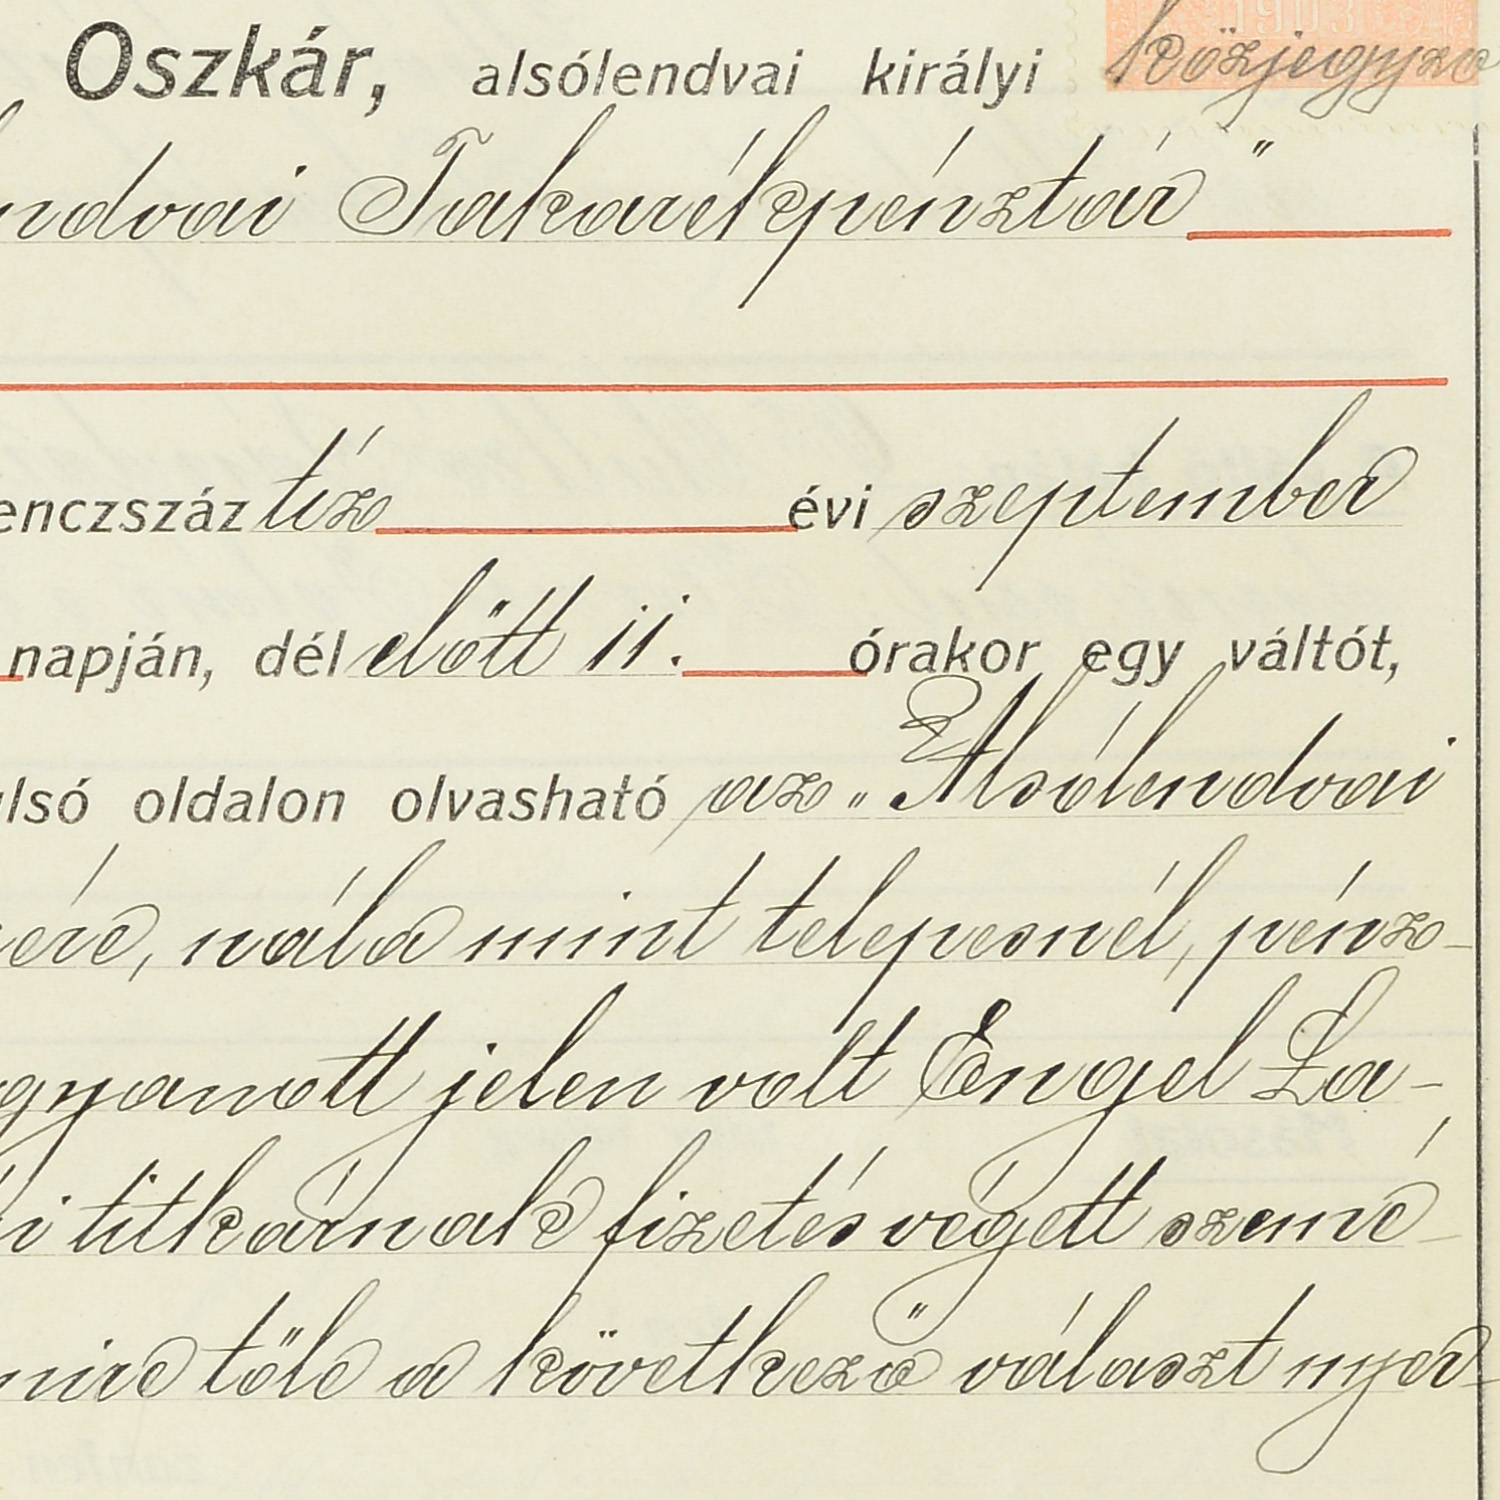 Oszkár, alsólendvai királyi közjegyző
ndvai Takarékpénztár"
enczszáz tíz évi szeptember
napján, dél előtt 11. órakor egy váltót,
ulsó oldalon olvasható az „Alsólendvai
ére, nála mint telepesnél, pénz-
gyanott jelen volt Engel La-
i titkárnak fizetés végett szemé-
mire tőle a következő választ nyer-